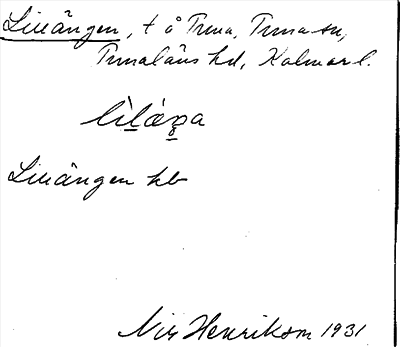 Lillängen, t å Tuna, Tuna sn,
Tunaläns hd, Kalmar l.
Lillängen kb
Nils Henrikson 1931